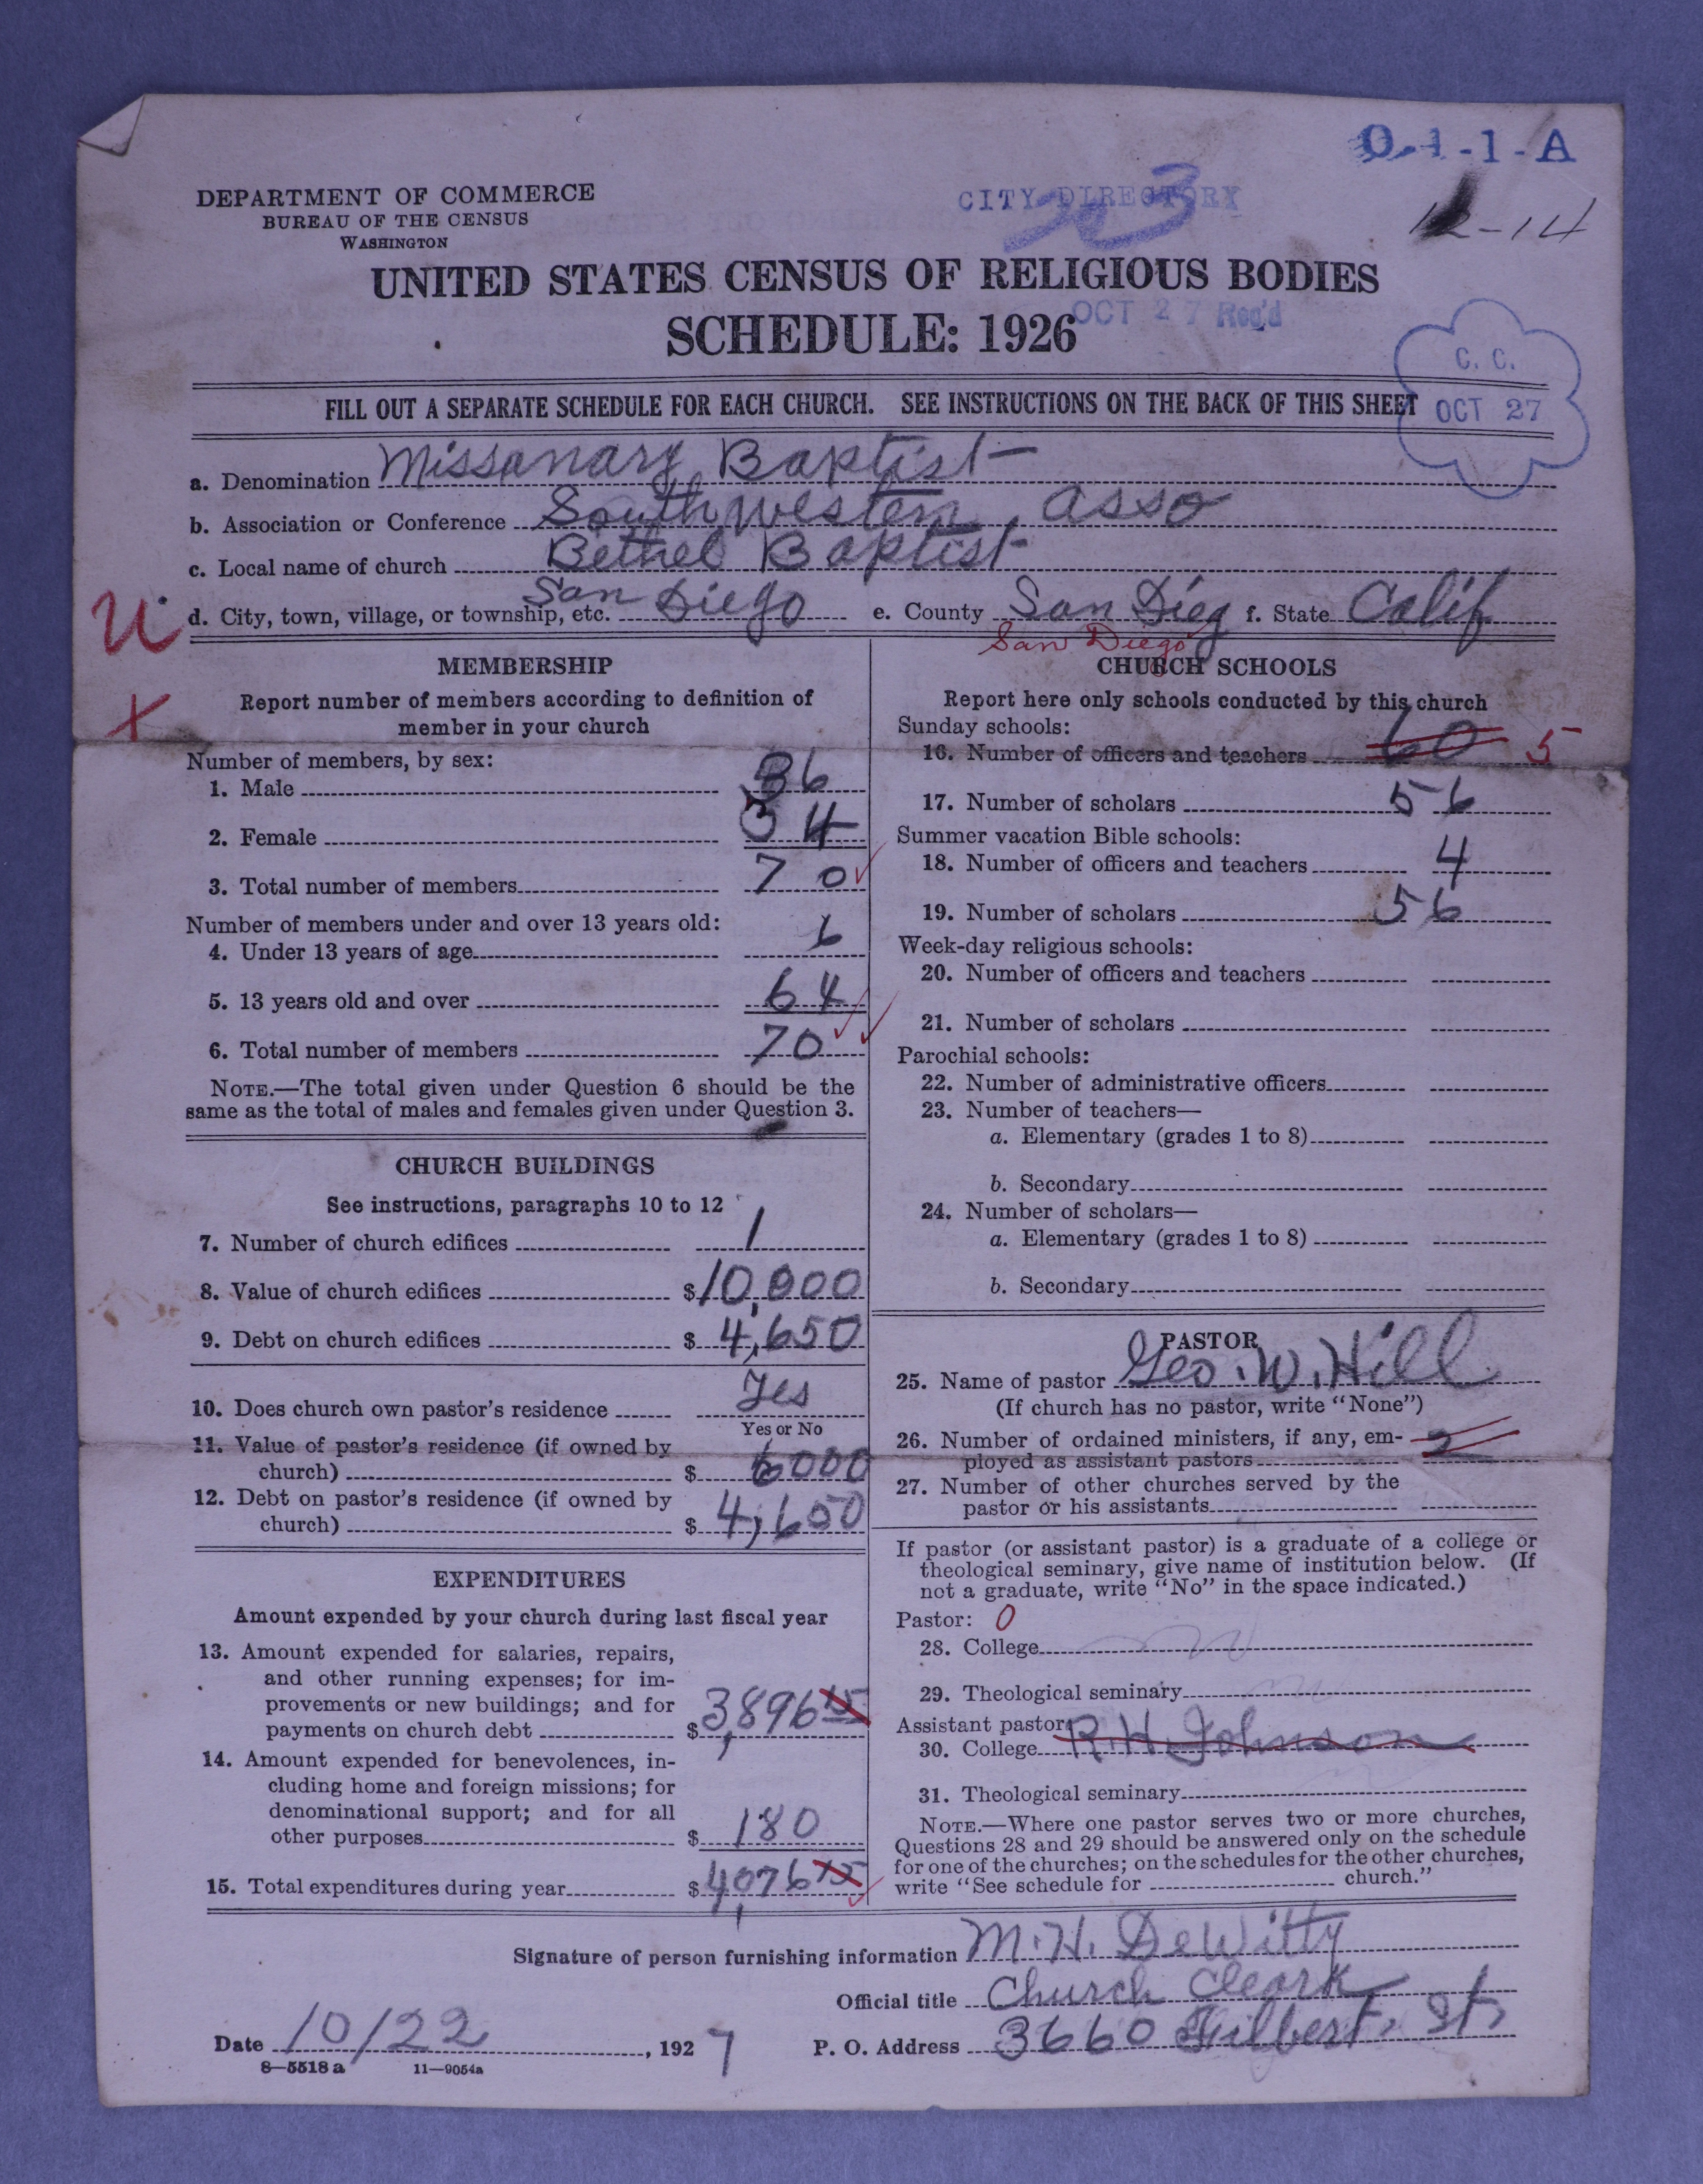 O-1-1-A
DEPARTMENT OF COMMERCE
BUREAU OF THE CENSUS
WASHINGTON
CITY DIRECTORY
3
12-14
UNITED STATES CENSUS OF RELIGIOUS BODIES
SCHEDULE: 1926
OCT 27 Rec'd
C. C.
OCT 27
FILL OUT A SEPARATE SCHEDULE FOR EACH CHURCH. SEE INSTRUCTIONS ON THE BACK OF THIS SHEET
a. Denomination Missonary Baptist
b. Association or Conference Southwestern asso
c. Local name of church Bethel Baptist
U d. City, town, village, or township, etc. San Diego e. County San Dieg f. State Calif
San Diego
X
MEMBERSHIP
Report number of members according to definition of
member in your church
Number of members, by sex:
1. Male 36
2. Female 34
3. Total number of members 70
Number of members under and over 13 years old:
4. Under 13 years of age 6
5. 13 years old and over 64
6. Total number of members 70
NOTE.—The total given under Question 6 should be the
same as the total of males and females given under Question 3.
CHURCH BUILDINGS
See instructions, paragraphs 10 to 12
7. Number of church edifices 1
8. Value of church edifices $10,000
9. Debt on church edifices $4,650
10. Does church own pastor's residence Yes
Yes or No
11. Value of pastor's residence (if owned by
church) $ 6000
12. Debt on pastor's residence (if owned by
church) $ 4,650
EXPENDITURES
Amount expended by your church during last fiscal year
13. Amount expended for salaries, repairs,
and other running expenses; for im-
provements or new buildings; and for
payments on church debt $3,896 15
14. Amount expended for benevolences, in-
cluding home and foreign missions; for
denominational support; and for all
other purposes $ 180
15. Total expenditures during year $4,076 15
CHURCH SCHOOLS
Report here only schools conducted by this church
Sunday schools:
16. Number of officers and teachers 60 5
17. Number of scholars 56
Summer vacation Bible schools:
18. Number of officers and teachers 4
19. Number of scholars 56
Week-day religious schools:
20. Number of officers and teachers
21. Number of scholars
Parochial schools:
22. Number of administrative officers
23. Number of teachers—
a. Elementary (grades 1 to 8)
b. Secondary
24. Number of scholars—
a. Elementary (grades 1 to 8)
b. Secondary
PASTOR
25. Name of pastor Geo. W. Hill
(If church has no pastor, write "None")
26. Number of ordained ministers, if any, em-
ployed as assistant pastors 2
27. Number of other churches served by the
pastor or his assistants
If pastor (or assistant pastor) is a graduate of a college or
theological seminary, give name of institution below. (If
not a graduate, write "No" in the space indicated.)
Pastor: 0
28. College
29. Theological seminary
Assistant pastor:
30. College R. H. Johnson
31. Theological seminary
NOTE.—Where one pastor serves two or more churches,
Questions 28 and 29 should be answered only on the schedule
for one of the churches; on the schedules for the other churches,
write "See schedule for church."
Signature of person furnishing information M. H. DeWitty
Official title Church Cleark
Date 10/22, 1927 P. O. Address 3660 Filbert. St.
8—5518 a 11—9054a